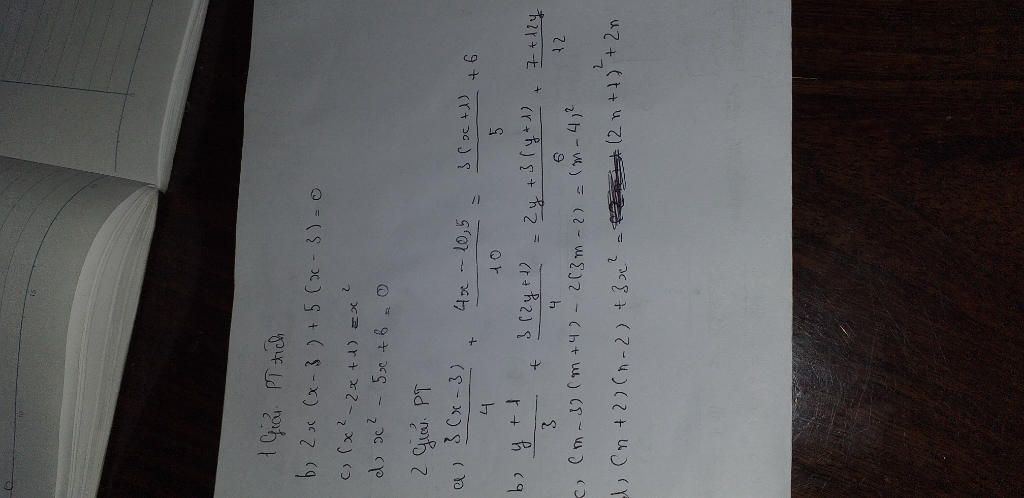 1 Giải PT tích
b) 2x (x-3) + 5 (x-3) = 0
c) (x² - 2x + 1) = x²
d) x² - 5x + 6 = 0
2 Giải PT
a) 3(x-3)/4 + 4x-10,5/10 = 3(x+1)/5 + 6
b) y+1/3 + 3(2y+1)/4 = 2y+3(y+1)/6 + 7+12y/12
c) (m-3)(m+4) - 2(3m-2) = (m-4)²
d) (n+2)(n-2) + 3x² = (2n+1)² + 2n